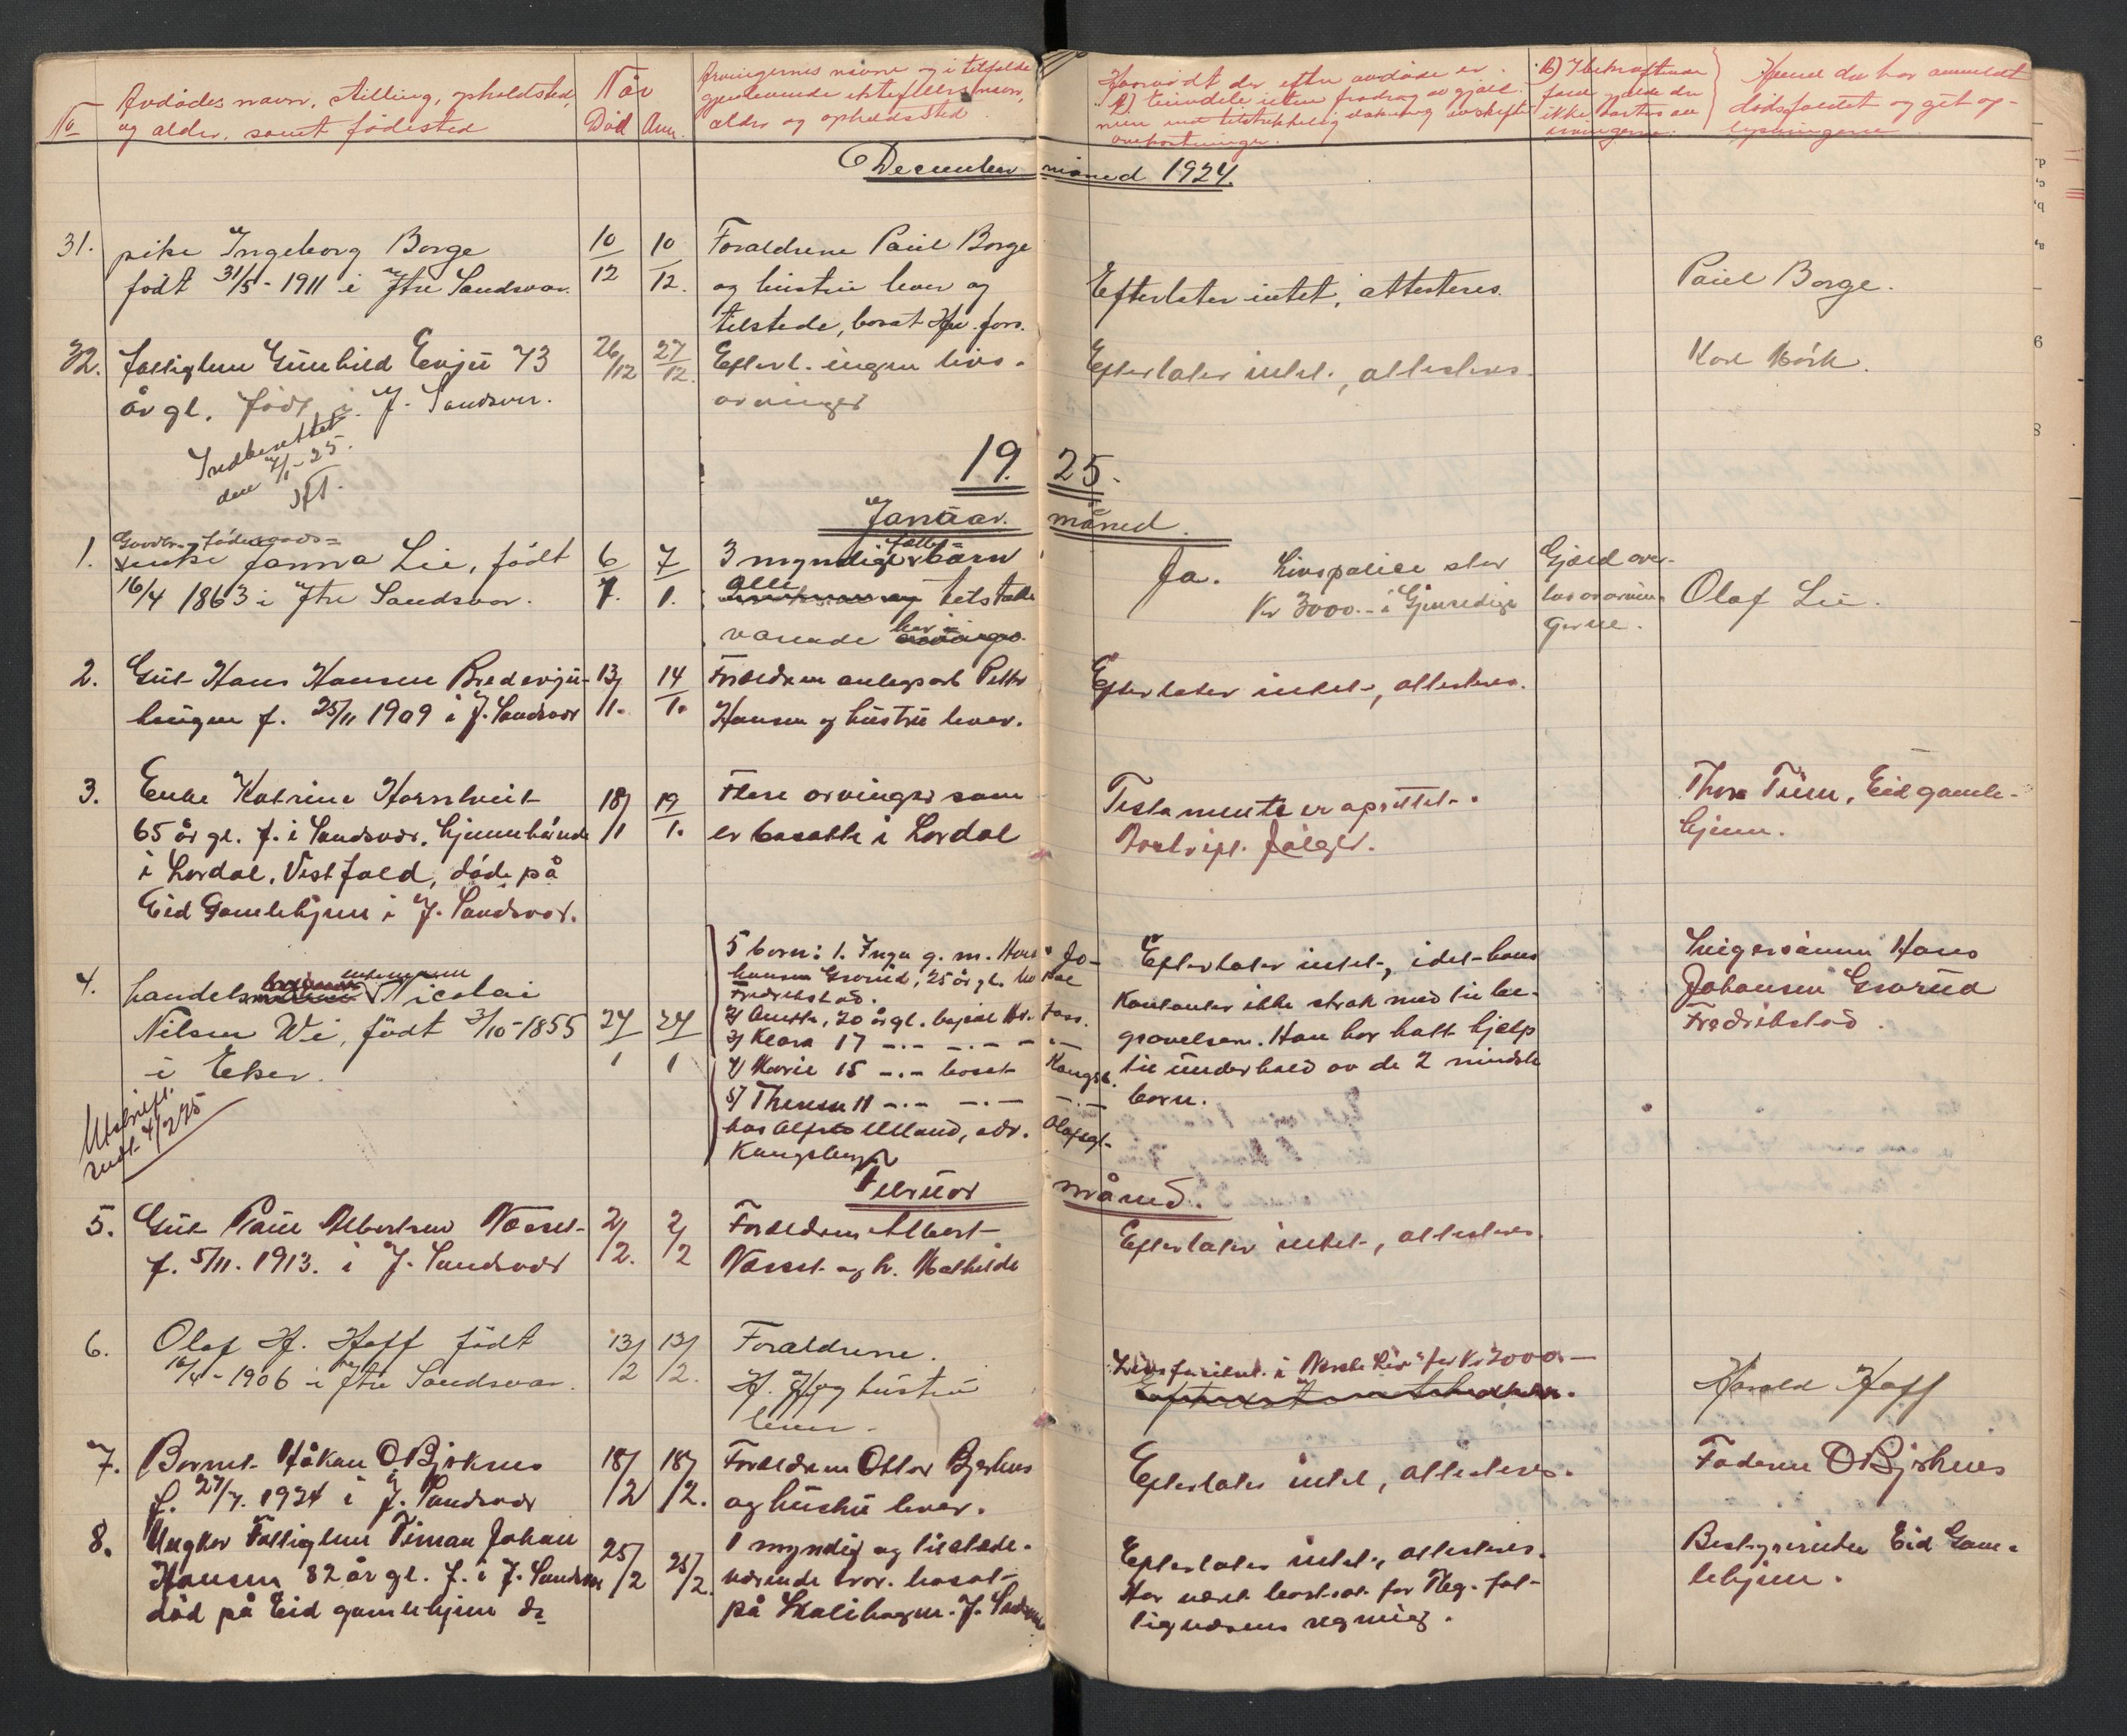 No
Avdødes navn, stilling, opholdsted,
og alder, samt fødested
Når
Død Anm.
Arvingernes navne og i tilfælde
gjenlevende ektefælles navn,
alder og opholdssted
Hvorvidt der efter avdøde er
ikke svartes av
arvingerne.
Hvem der har anmeldt
dødsfaldet og git op-
lysningerne
December måned 1924.
31. pike Ingeborg Borge
født 31/5 - 1911 i Ytre Sandsvær.
10/12 10/12.
Forældrene Paul Borge
og hustru lever og
tilstede, bosat
Efterlater intet, attesteres.
Paul Borge.
32. fattiglem Gunhild Evju 73
år gl. født i Y. Sandsvær.
26/12 27/12.
Efterl. ingen livs-
arvinger
Efterlater intet, attesteres.
Karl Mörk.
Indberettet
den 4/1-25.
1925.
Januar måned.
1. enke Janna Lie, født
16/4 1863 i Ytre Sandsvær.
6/1. 7/1.
3 myndige fælles børn
alle tilstede
værende her
Ja. Livspolice stor
Kr 3000.- i Gjensidige
Gjæld over-
tas av arvin-
gerne.
Olaf Lie.
2. Gut Hans Hansen Bredevju-
haugen f. 25/11 1909 i Y. Sandsvær
13/1. 14/1.
Forældrene anlegsarb. Petter
Hansen og hustru lever.
Efterlater intet, attesteres.
3. Enke Katrine Horntveit
65 år gl. f. i Sandsvær, hjemmhørende
i Lardal, Vestfold, døde på
Eid Gamlehjem i Y. Sandsvær.
18/1 19/1.
Flere arvinger som
er bosatte i Lardal
Testamente er oprettet.
følger.
Thora Tuen, Eid gamle-
hjem.
4. handels Nicolai
Nilsen Wi, født 3/10-1855
i Eker.
24/1 24/1
5 børn: 1. Inga g. m. Hans Jo-
hansen Grorud, 25 år gl.
Fredrikstad.
2/ Anetta, 20 år gl.
3/ Klara 17 -.- -.- -.-
4/ Marie 15 -.- bosat Kongsb.
5/ Theresa 11 -.- -.- -.-
hos Ulland, adr. Olafsgt.
Kongsberg
Efterlater intet, idet hans
kontanter ikke strak med til be-
gravelsen. Han har hatt hjælp
til underhold av de 2 mindste
børn.
Svigersønnen Hans
Johansen Grorud
Fredrikstad.
Utskrift
indt. 4/2 25
Februar måned.
5. Gut Paul Albertsen Næsset
f. 5/11. 1913. i Y. Sandsvær
2/2. 2/2
Forældrene Albert
Næsset og h. Mathilde
Efterlater intet, attesteres.
6. Olaf H. Hoff født
16/4 - 1906 i Ytre Sandsvær.
13/2 13/2.
Forældrene
H. Hoff og hustru
lever.
Livsforsikret i "Norske Liv" for Kr 2000.-
Harald Hoff
7. Barnet Håkon O. Bjørkhus
f. 27/7. 1924 i Y. Sandsvær
18/2 18/2.
Forældrene Ottar Bjerkhus
og hustru lever.
Efterlater intet, attesteres.
Faderen O Bjørkhus
8. Ungkar Fattiglem Timan Johan
Hansen 82 år gl. f. i Y. Sandsvær
død på Eid gamlehjem
25/2 25/2.
1 myndig og tilstede-
værende bror. bosat
på Y. Sandsvær
Efterlater intet, attesteres.
Har vært bortsat for Kbg. fat-
tigvæsens regning.
Bestyrerinden Eid Gam-
lehjem.